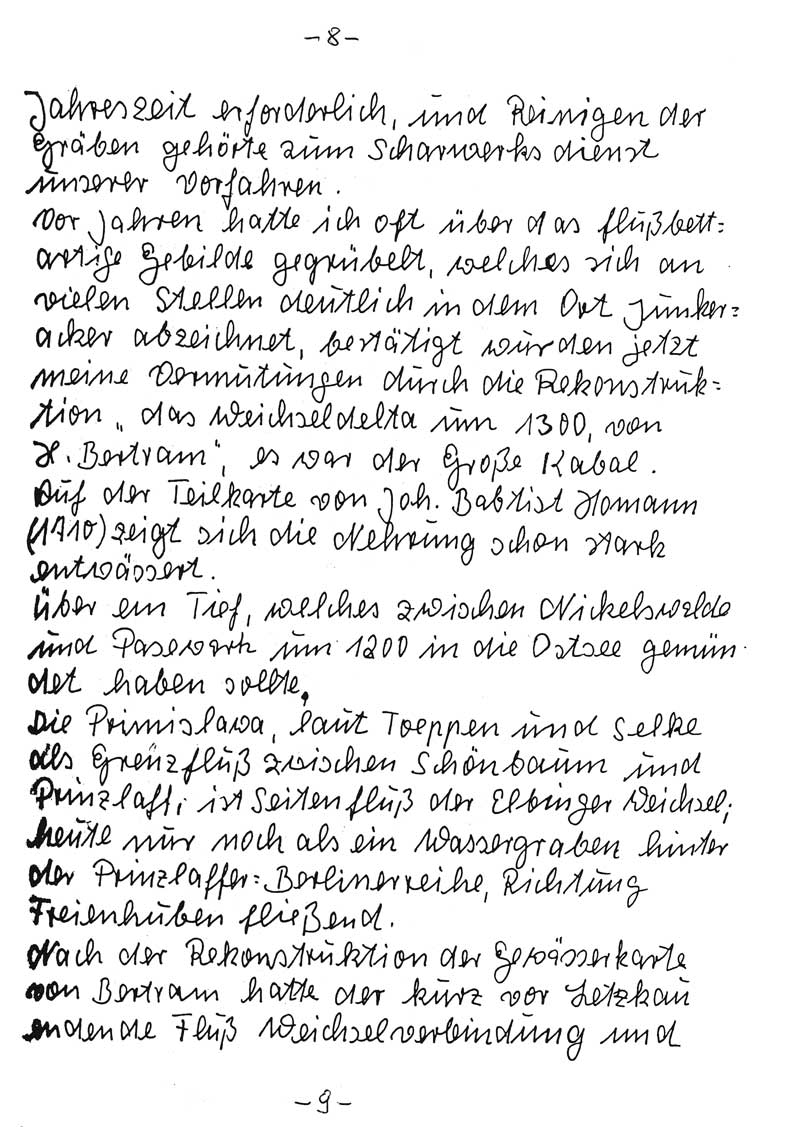 -8-
Jahreszeit erforderlich, und Reinigen der
Gräben gehörte zum Scharwerksdienst
unserer Vorfahren.
Vor Jahren hatte ich oft über das flußbett=
artige Gebilde gegrübelt, welches sich an
vielen Stellen deutlich in dem Ort Junker=
acker abzeichnet, bestätigt wurden jetzt
meine Vermutungen durch die Rekonstruk=
tion „das Weichseldelta um 1300, von
H. Bertram", es war der Große Kabal.
Auf der Teilkarte von Joh. Babtist Homann
(1710) zeigt sich die Nehrung schon stark
entwässert.
Über ein Tief, welches zwischen Nickelswalde
und Pasewark um 1200 in die Ostsee gemün-
det haben sollte,
Die Primislawa, laut Toeppen und Selke
als Grenzfluß zwischen Schönbaum und
Prinzlaff, ist Seitenfluß der Elbinger Weichsel,
heute nur noch als ein Wassergraben hinter
der Prinzlaffer=Berlinerreihe, Richtung
Freienhuben fließend.
Nach der Rekonstruktion der Gewässerkarte
von Bertram hatte der kurz vor Letzkau
endende Fluß Weichselverbindung und
-9-